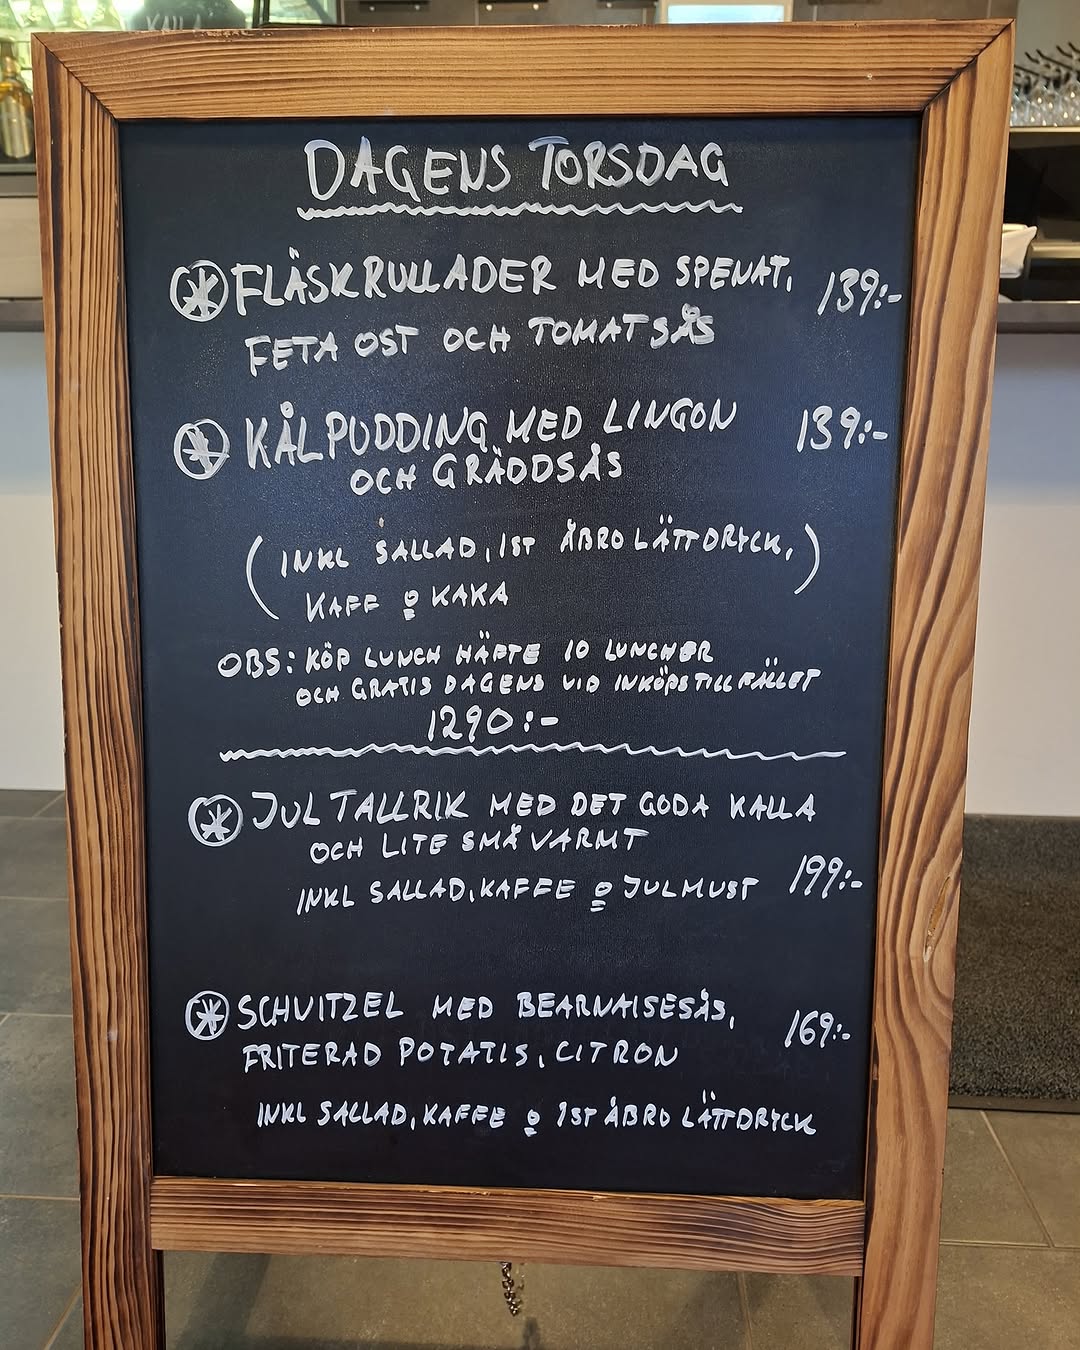 DAGENS TORSDAG
FLÄSKRULLADER MED SPENAT, 139:-
FETA OST OCH TOMATSÅS
KÅLPUDDING MED LINGON 139:-
OCH GRÄDDSÅS
(INKL SALLAD, 1ST ÅBRO LÄTTDRYCK,)
KAFF O KAKA
OBS: KÖP LUNCH HÄFTE 10 LUNCHER
OCH GRATIS DAGENS VID INKÖPSTILLFÄLLET
1290:-
JUL TALLRIK MED DET GODA KALLA
OCH LITE SMÅ VARMT
INKL SALLAD, KAFFE O JULMUST 199:-
SCHVITZEL MED BEARNAISESÅS, 169:-
FRITERAD POTATIS, CITRON
INKL SALLAD, KAFFE O 1ST ÅBRO LÄTTDRYCK